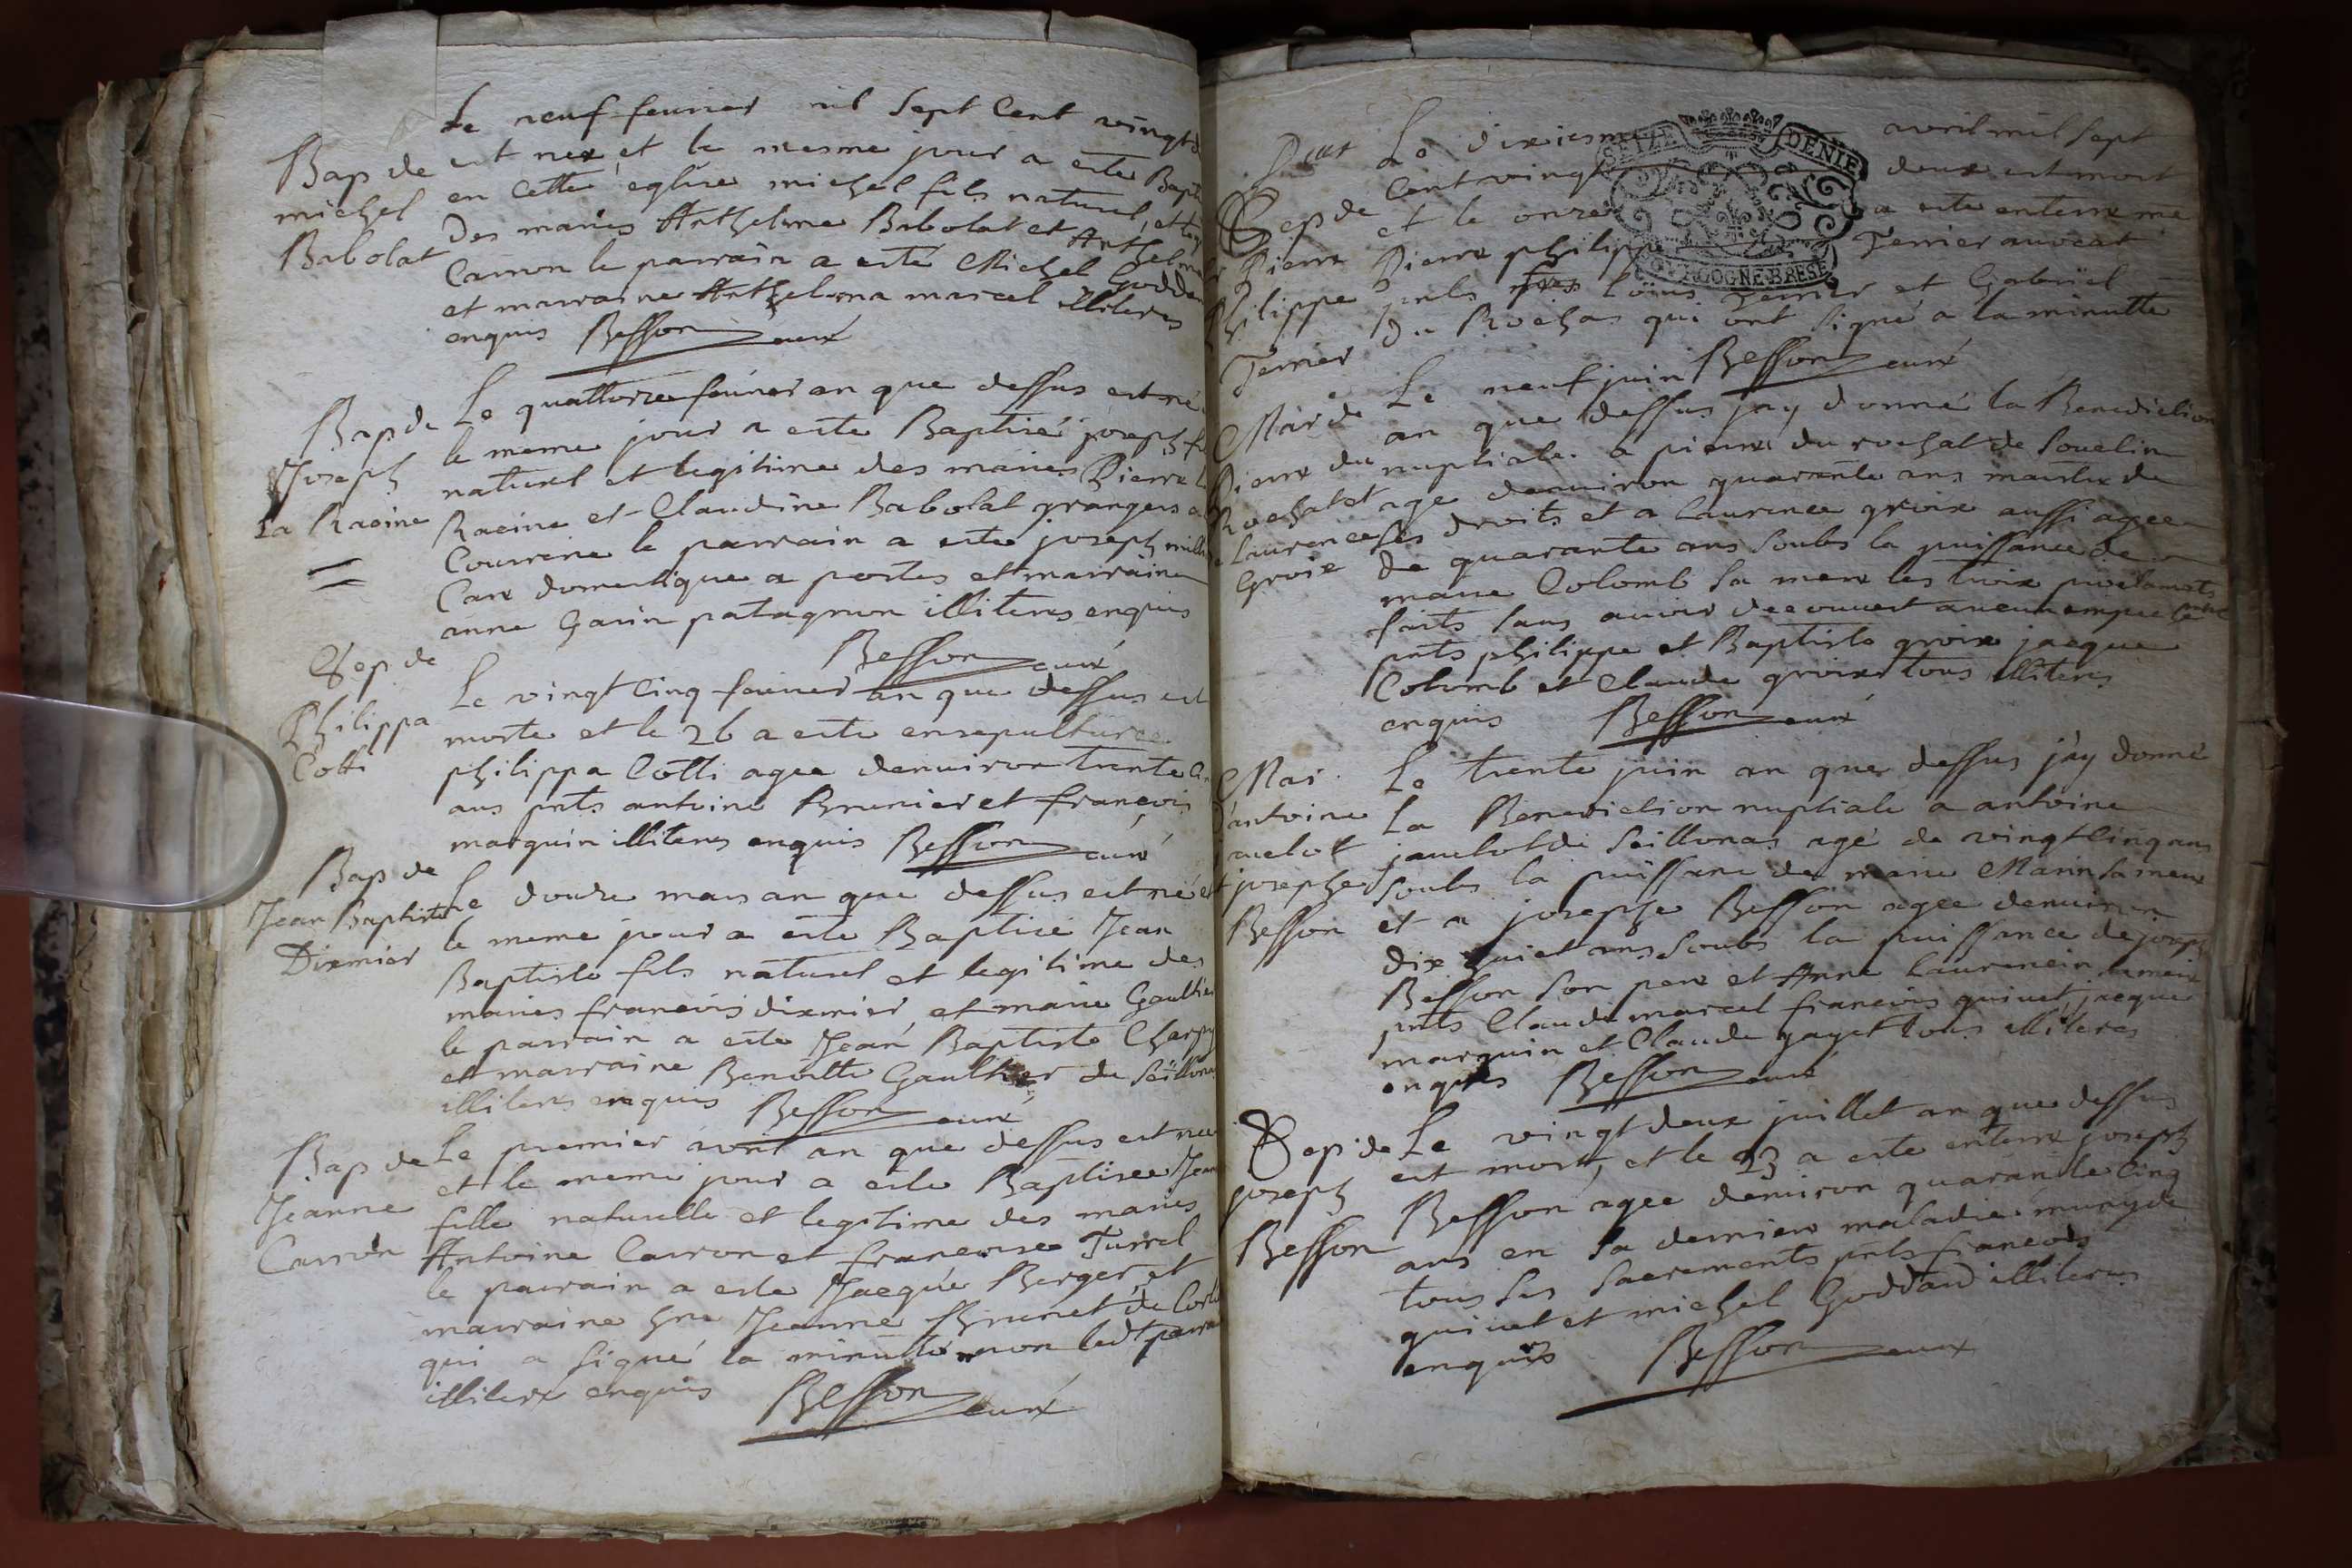 Le neuf feurier mil Sept Cent vingt d
Bap de est nex et le mesme jour a este Bapti
michel en Cette eglise michel fils naturel, et leg
Babolat des mariés Anthelme Babolat et Anthelme
Carron le parrain a esté Michel Goddar
et marraine Anthelma marcel illiteres
enquis Besson curé
Bap de Le quattorze feurier an que dessus est né
Joseph le meme jour a este Baptisé joseph fi
La Racine naturel et legitime des mariés Pierre La
Racine et Claudine Babolat grangers a
Courrene le parrain a este joseph mill
Carx domestique a portes et marraine
anne Garin patagnon illiteres enquis
Besson curé
Sep de
Philippa Le vingt Cinq feurier an que dessus est
Cotti morte et le 26 a este ensepulturée
philippa Cotti agee denuiron trente Ci
ans pnts antoine Brunier et francois
marquin illiteres enquis Besson curé
Bap de
Jean Baptiste Le douze mars an que dessus est né et
Dixmier le meme jour a este Baptisé Jean
Baptiste fils naturel et legitime des
mariés francois dixmier et marie Gaulthier
le parrain a este Jean Baptiste Charpy
et marraine Benoitte Gaulthier de Seillonas
illiteres enquis Besson curé
Bap de Le premier avril an que dessus est nee
Jeanne et le meme jour a este Baptisee Jean
Carron fille naturelle et legitime des mariés
Antoine Carron et francoise Turrel
le parrain a este Jacque Berger, et
marraine hne Jeanne Brunet de Corl
qui a signé la minutte non ledt parra
illitere enquis Besson curé
Le dixiesme avril mil sept
Sep de Cent vingt deux est mort
et le onze a este enterre me
Pierre Pierre philippe Terrier auocat
Philippe pnts Loüis Terrier et Gabriel
Terrier du Rochas qui ont signé a la minutte
Besson curé
Mar de Le neuf juin
Pierre du an que dessus jay donné la Benediction
Rochat et nuptiale a pierre du rochat de Souclin
Laurence agé denuiron quarante ans maitre de
Groix ses droits et a Laurence groix aussi agee
de quarante ans soubs la puissance de
marie Colomb sa mere les trois proclamats
faits sans auoir decouuert aucun empeche
pnts philippe et Baptiste groix jacque
Colomb et Claude groix tous illiteres
enquis Besson curé
Mar Le trente juin an que dessus jay donné
d'antoine La Benediction nuptiale a antoine
jauelot jauelot de Seillonas agé de vingt Cinq ans
josephe soubs la puissance de marie Marin sa mere
Besson et a josephe Besson agee denuiron
dix huict ans soubs la puissance de joseph
Besson son pere et Anne Laurencin sa mere
pnts Claude marcel francois quinet, jacque
marquin et Claude gayet tous illiteres
enquis Besson curé
Sep de Le vingt deux juillet an que dessus
joseph est mort, et le 23 a este enterré joseph
Besson Besson agee denuiron quarante Cinq
ans en sa derniere maladie muny de
tous ses sacrements pnts francois
quinet et michel Goddard illiteres
enquis Besson curé
SEIZE DENIE
BOURGOGNE BRESE